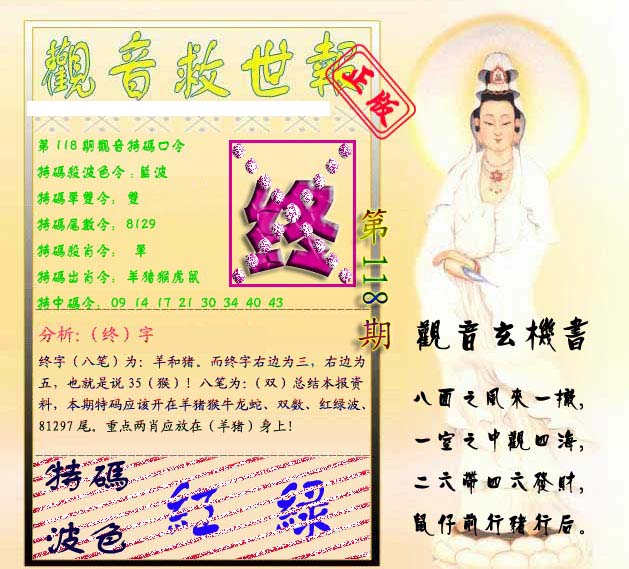 觀音救世報
正版
第118期觀音特碼口令
特碼殺波色令:藍波
特碼單雙令: 雙
特碼尾數令: 8129
特碼殺肖令: 單
特碼出肖令: 羊猪猴虎鼠
特中碼令: 09 14 17 21 30 34 40 43
终
第118期
分析:(终)字
终字（八笔）为：羊和猪。而终字右边为三，右边为
五，也就是说 35（猴）！八笔为：（双）总结本报资
料，本期特码应该开在羊猪猴牛龙蛇、双数、红绿波、
81297 尾。重点两肖应放在（羊猪）身上！
特碼
波色
紅 綠
觀音玄機書
八面之風來一撒,
一室之中觀四海,
二六帶四六發財,
鼠仔前行豬行后。